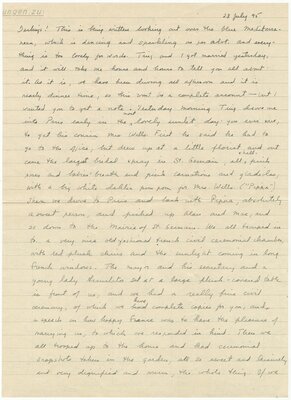 ungen.zu
23 July '45
Darlings! This is being written looking out over the blue Mediterra-
nean, which is dancing and sparkling as per advert. and every-
thing is too lovely for words. Tiny and I got married yesterday,
and it will take me hours and hours to tell you all about
it. As it is we have been driving all afternoon and it is
nearly dinner time, so this won't be a complete account — but I
wanted you to get a note. Yesterday morning Tiny drove me
into Paris early in the most lovely sunlit day you ever saw,
to get his cousin Mrs Wells. First he said he had to
go to the office, but drew up at a little florist and out
came the largest bridal spray in St. Germain, all pink
roses and babies' breath and pink carnations and gladiolas,
with a big white dahlia pom pom for Mrs Wells ("Pepina")
Then we drove to Paris and back with Pepina, absolutely
a sweet person, and picked up Alan and Mac, and
so down to the Mairie of St Germain. We all tramped in
to a very nice old fashioned french civil ceremonial chamber,
with red plush chairs and the sunlight coming in long
french windows. The mayor and his secretary and a
young lady translator sat at a large plush-covered table
in front of us, and we had a really fine civil
ceremony, of which we have complete copies for you, and
a speech on how happy France was to have the pleasure of
marrying us, to which we responded in kind. Then we
all trooped up to the house and had ceremonial
snapshots taken in the garden, all so sweet and leisurely
but very dignified and warm, the whole thing. If we